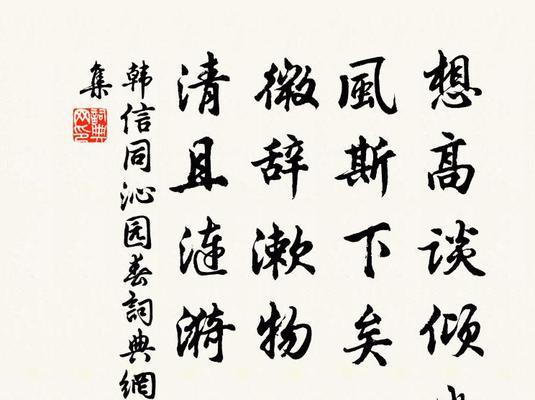 想高谈倾
風斯下矣
微辞漱物
清且漣漪
韩信同沁园春詞典網
集
詞典
网印